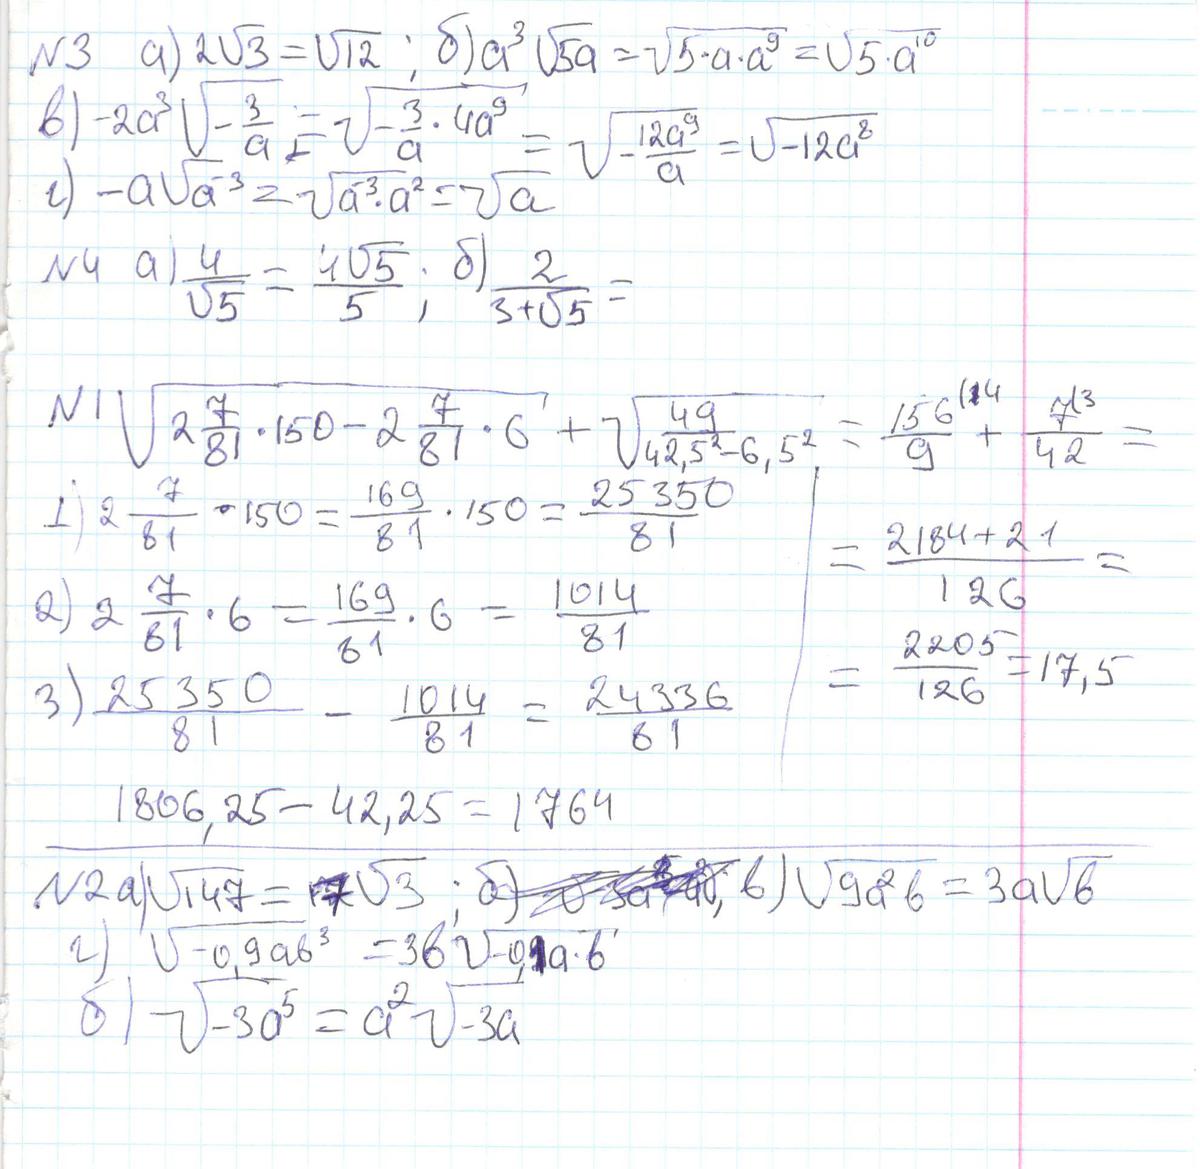 №3 а) 2√3 = √12 ; б) a³√5a = √5·a·a⁹ = √5·a¹⁰
в) -2a³√-3/a = √-3/a · 4a⁹ = √-12a⁹/a = √-12a⁸
г) -a√a⁻³ = √a⁻³·a² = √a
№4 а) 4/√5 = 4√5/5 ; б) 2/(3+√5) =
№1 √(2 7/81 · 150 - 2 7/81 · 6) + √(49/(42,5² - 6,5²)) = 156/9 (14 + 7/42 (3 =
1) 2 7/81 · 150 = 169/81 · 150 = 25350/81
= (2184 + 21)/126 =
2) 2 7/81 · 6 = 169/81 · 6 = 1014/81
= 2205/126 = 17,5
3) 25350/81 - 1014/81 = 24336/81
1806,25 - 42,25 = 1764
№2 а) √147 = 7√3 ; б) в) √9a²b = 3a√b
г) √-0,9ab³ = 3b√-0,1a·b
б) √-3a⁵ = a²√-3a